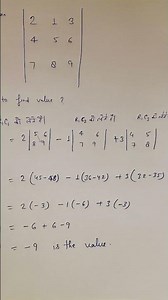 | 2 1 3 |
| 4 5 6 |
| 7 8 9 |
to find value ?
= 2 | 5 6 | - 1 | 4 6 | + 3 | 4 5 |
| 8 9 | | 7 9 | | 7 8 |
= 2 (45-48) - 1 (36-42) + 3 (32-35)
= 2 (-3) - 1 (-6) + 3 (-3)
= -6 + 6 - 9
= -9 is the value.